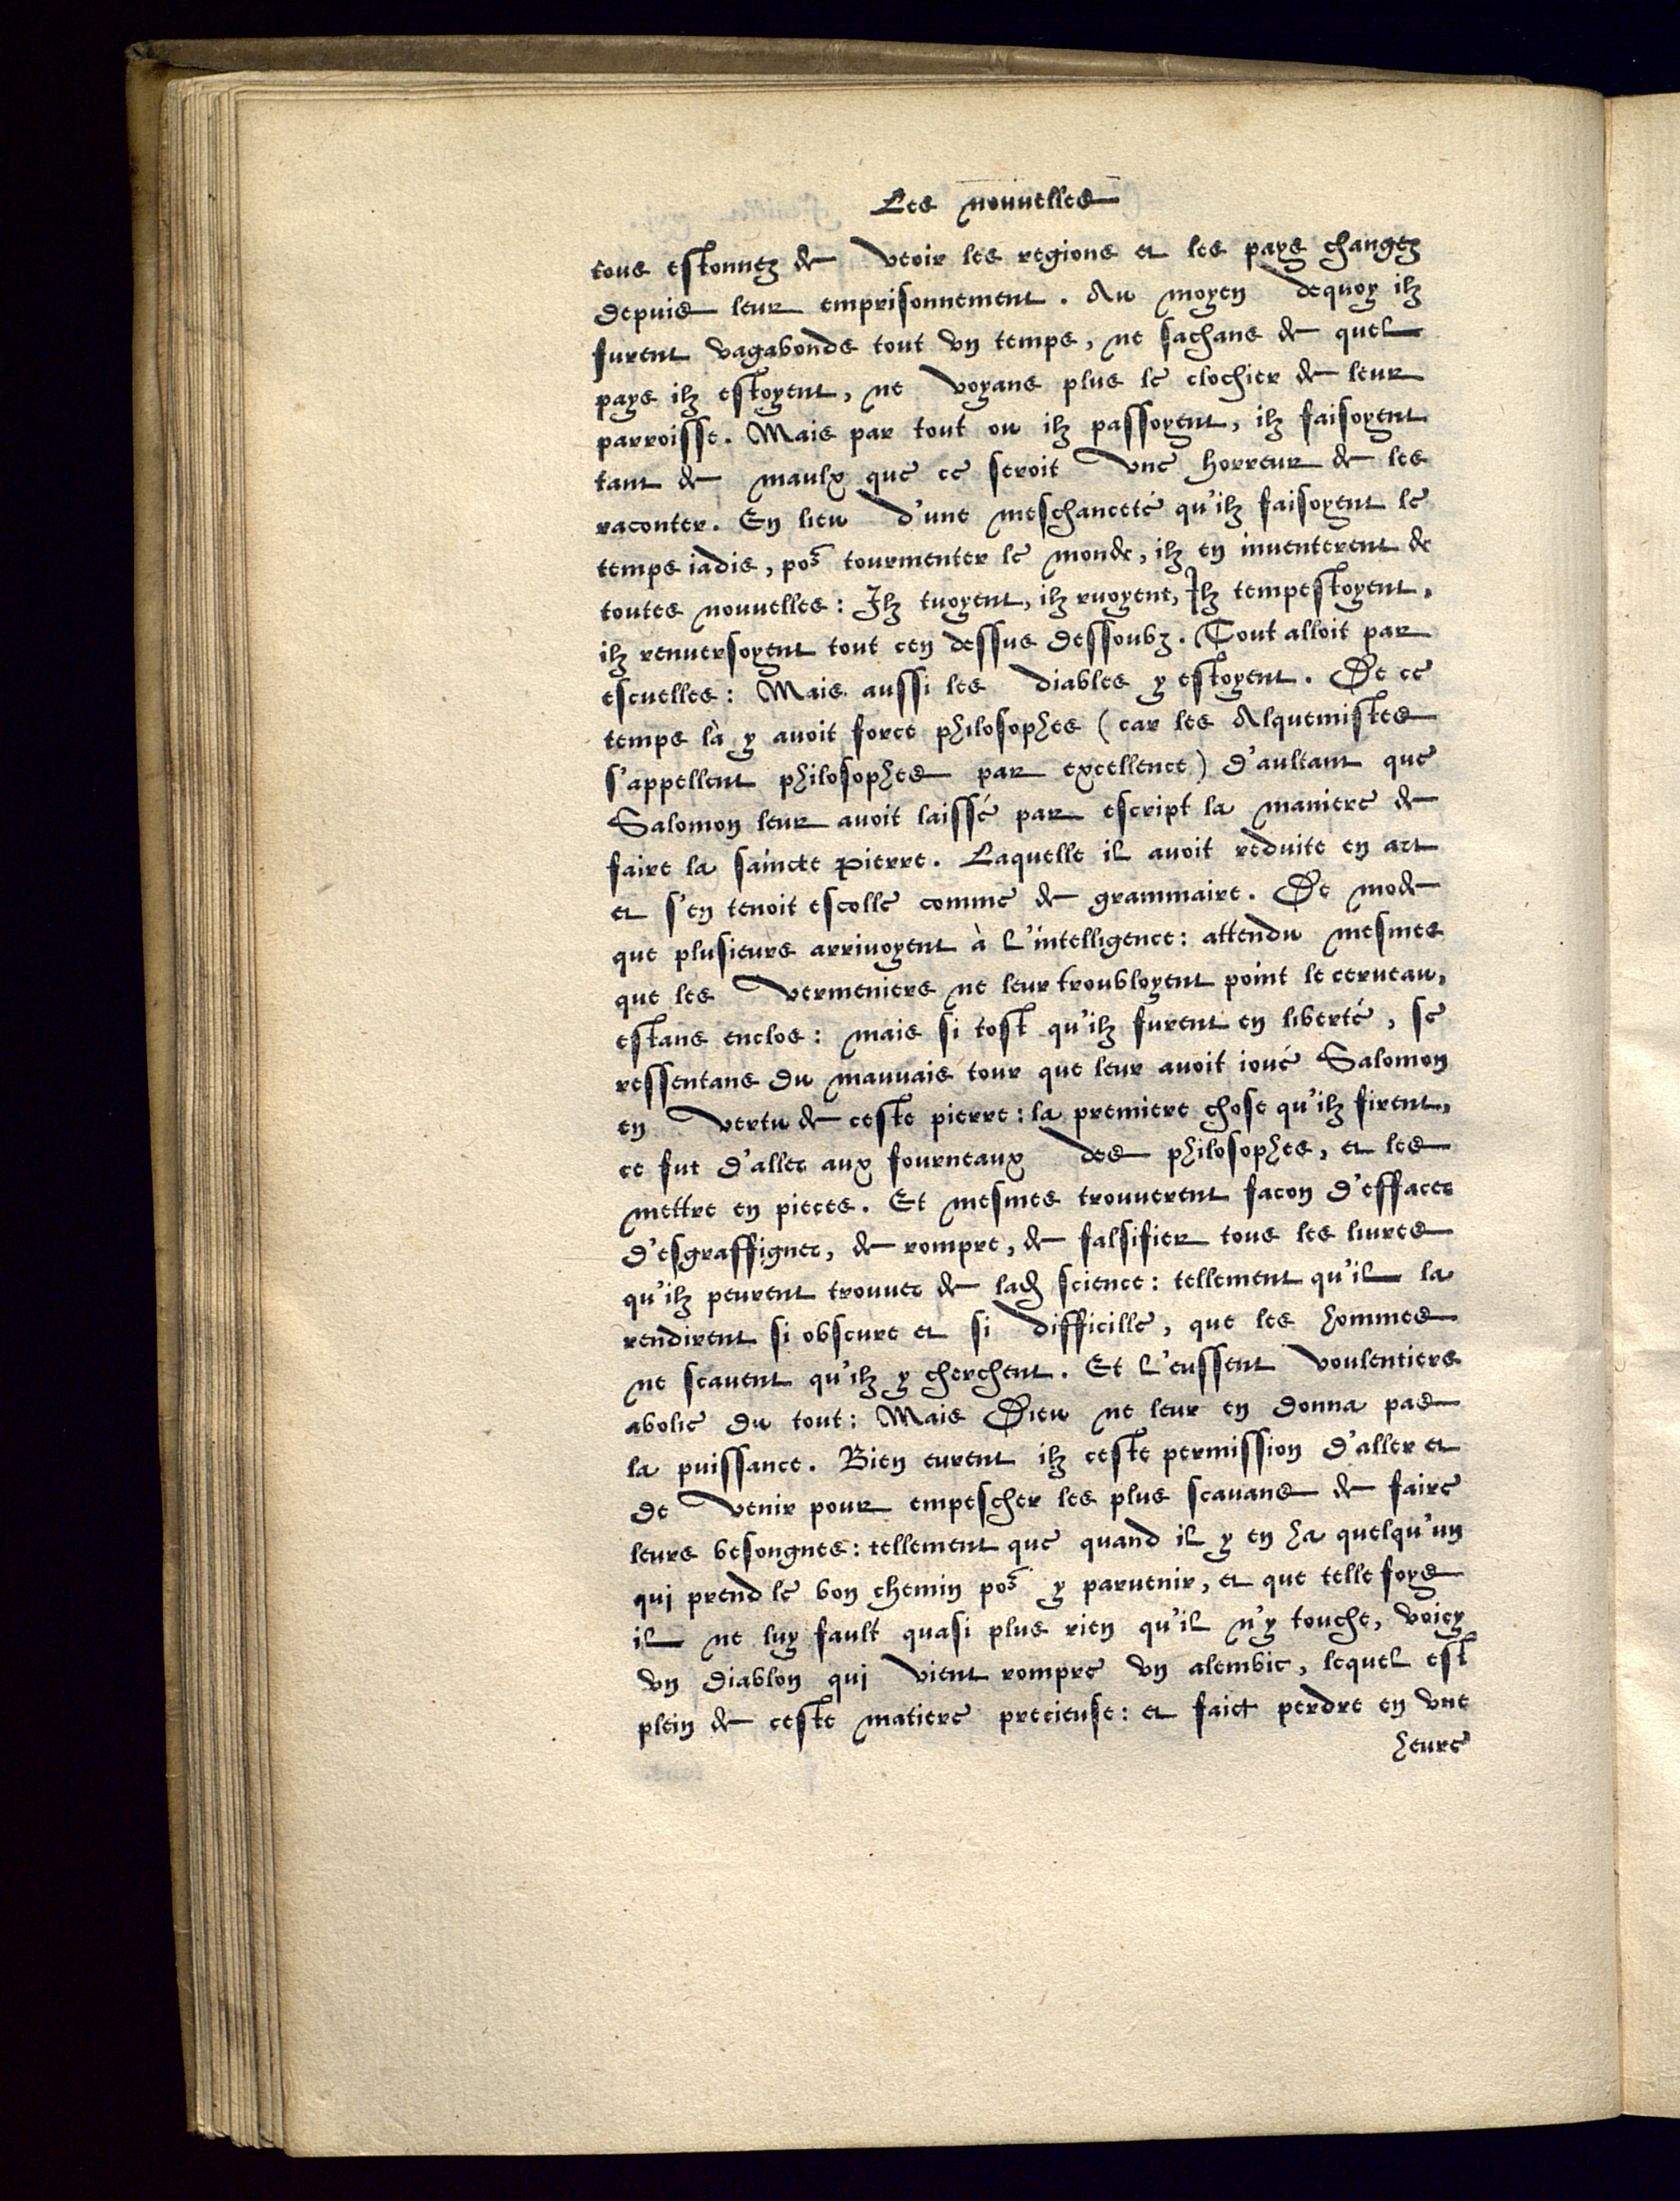 Les nouuelles
tous estonnez de veoir les regions et les pays changez
depuis leur emprisonnement. Au moyen dequoy ilz
furent vagabonds tout vn temps, ne sachans de quel
pays ilz estoyent, ne voyans plus le clochier de leur
parroisse. Mais par tout ou ilz passoyent, ilz faisoyent
tant de maulx que ce seroit vne horreur de les
raconter. En lieu d'une meschanceté qu'ilz faisoyent le
temps iadis, po⁹ tourmenter le monde, ilz en inuenterent de
toutes nouuelles: Ilz tuoyent, ilz ruoyent, Ilz tempestoyent,
ilz renuersoyent tout cen dessus dessoubz. Tout alloit par
escuelles: Mais aussi les diables y estoyent. De ce
temps là y auoit force philosophes (car les Alquemistes
s'appellent philosophes par excellence) d'aultant que
Salomon leur auoit laissé par escript la maniere de
faire la saincte pierre. Laquelle il auoit reduite en art
et s'en tenoit escolle comme de grammaire. De mode
que plusieurs arriuoyent à l'intelligence: attendu mesmes
que les vermeniers ne leur troubloyent point le cerueau,
estans enclos: mais si tost qu'ilz furent en liberté, se
ressentans du mauuais tour que leur auoit ioué Salomon
en vertu de ceste pierre: la premiere chose qu'ilz firent,
ce fut d'aller aux fourneaux des philosophes, et les
mettre en pieces. Et mesmes trouuerent facon d'effacer
d'esgraffigner, de rompre, de falsifier tous les liures
qu'ilz peurent trouuer de lad science: tellement qu'il la
rendirent si obscure et si difficille, que les hommes
ne scauent qu'ilz y cherchent. Et l'eussent voulentiers
abolie du tout: Mais Dieu ne leur en donna pas
la puissance. Bien eurent ilz ceste permission d'aller et
de venir pour empescher les plus scauans de faire
leurs besongnes: tellement que quand il y en ha quelqu'un
qui prend le bon chemin po⁹ y paruenir, et que telle foys
il ne luy fault quasi plus rien qu'il n'y touche, voicy
vn diablon qui vient rompre vn alembic, lequel est
plein de ceste matiere precieuse: et faict perdre en vne
heure